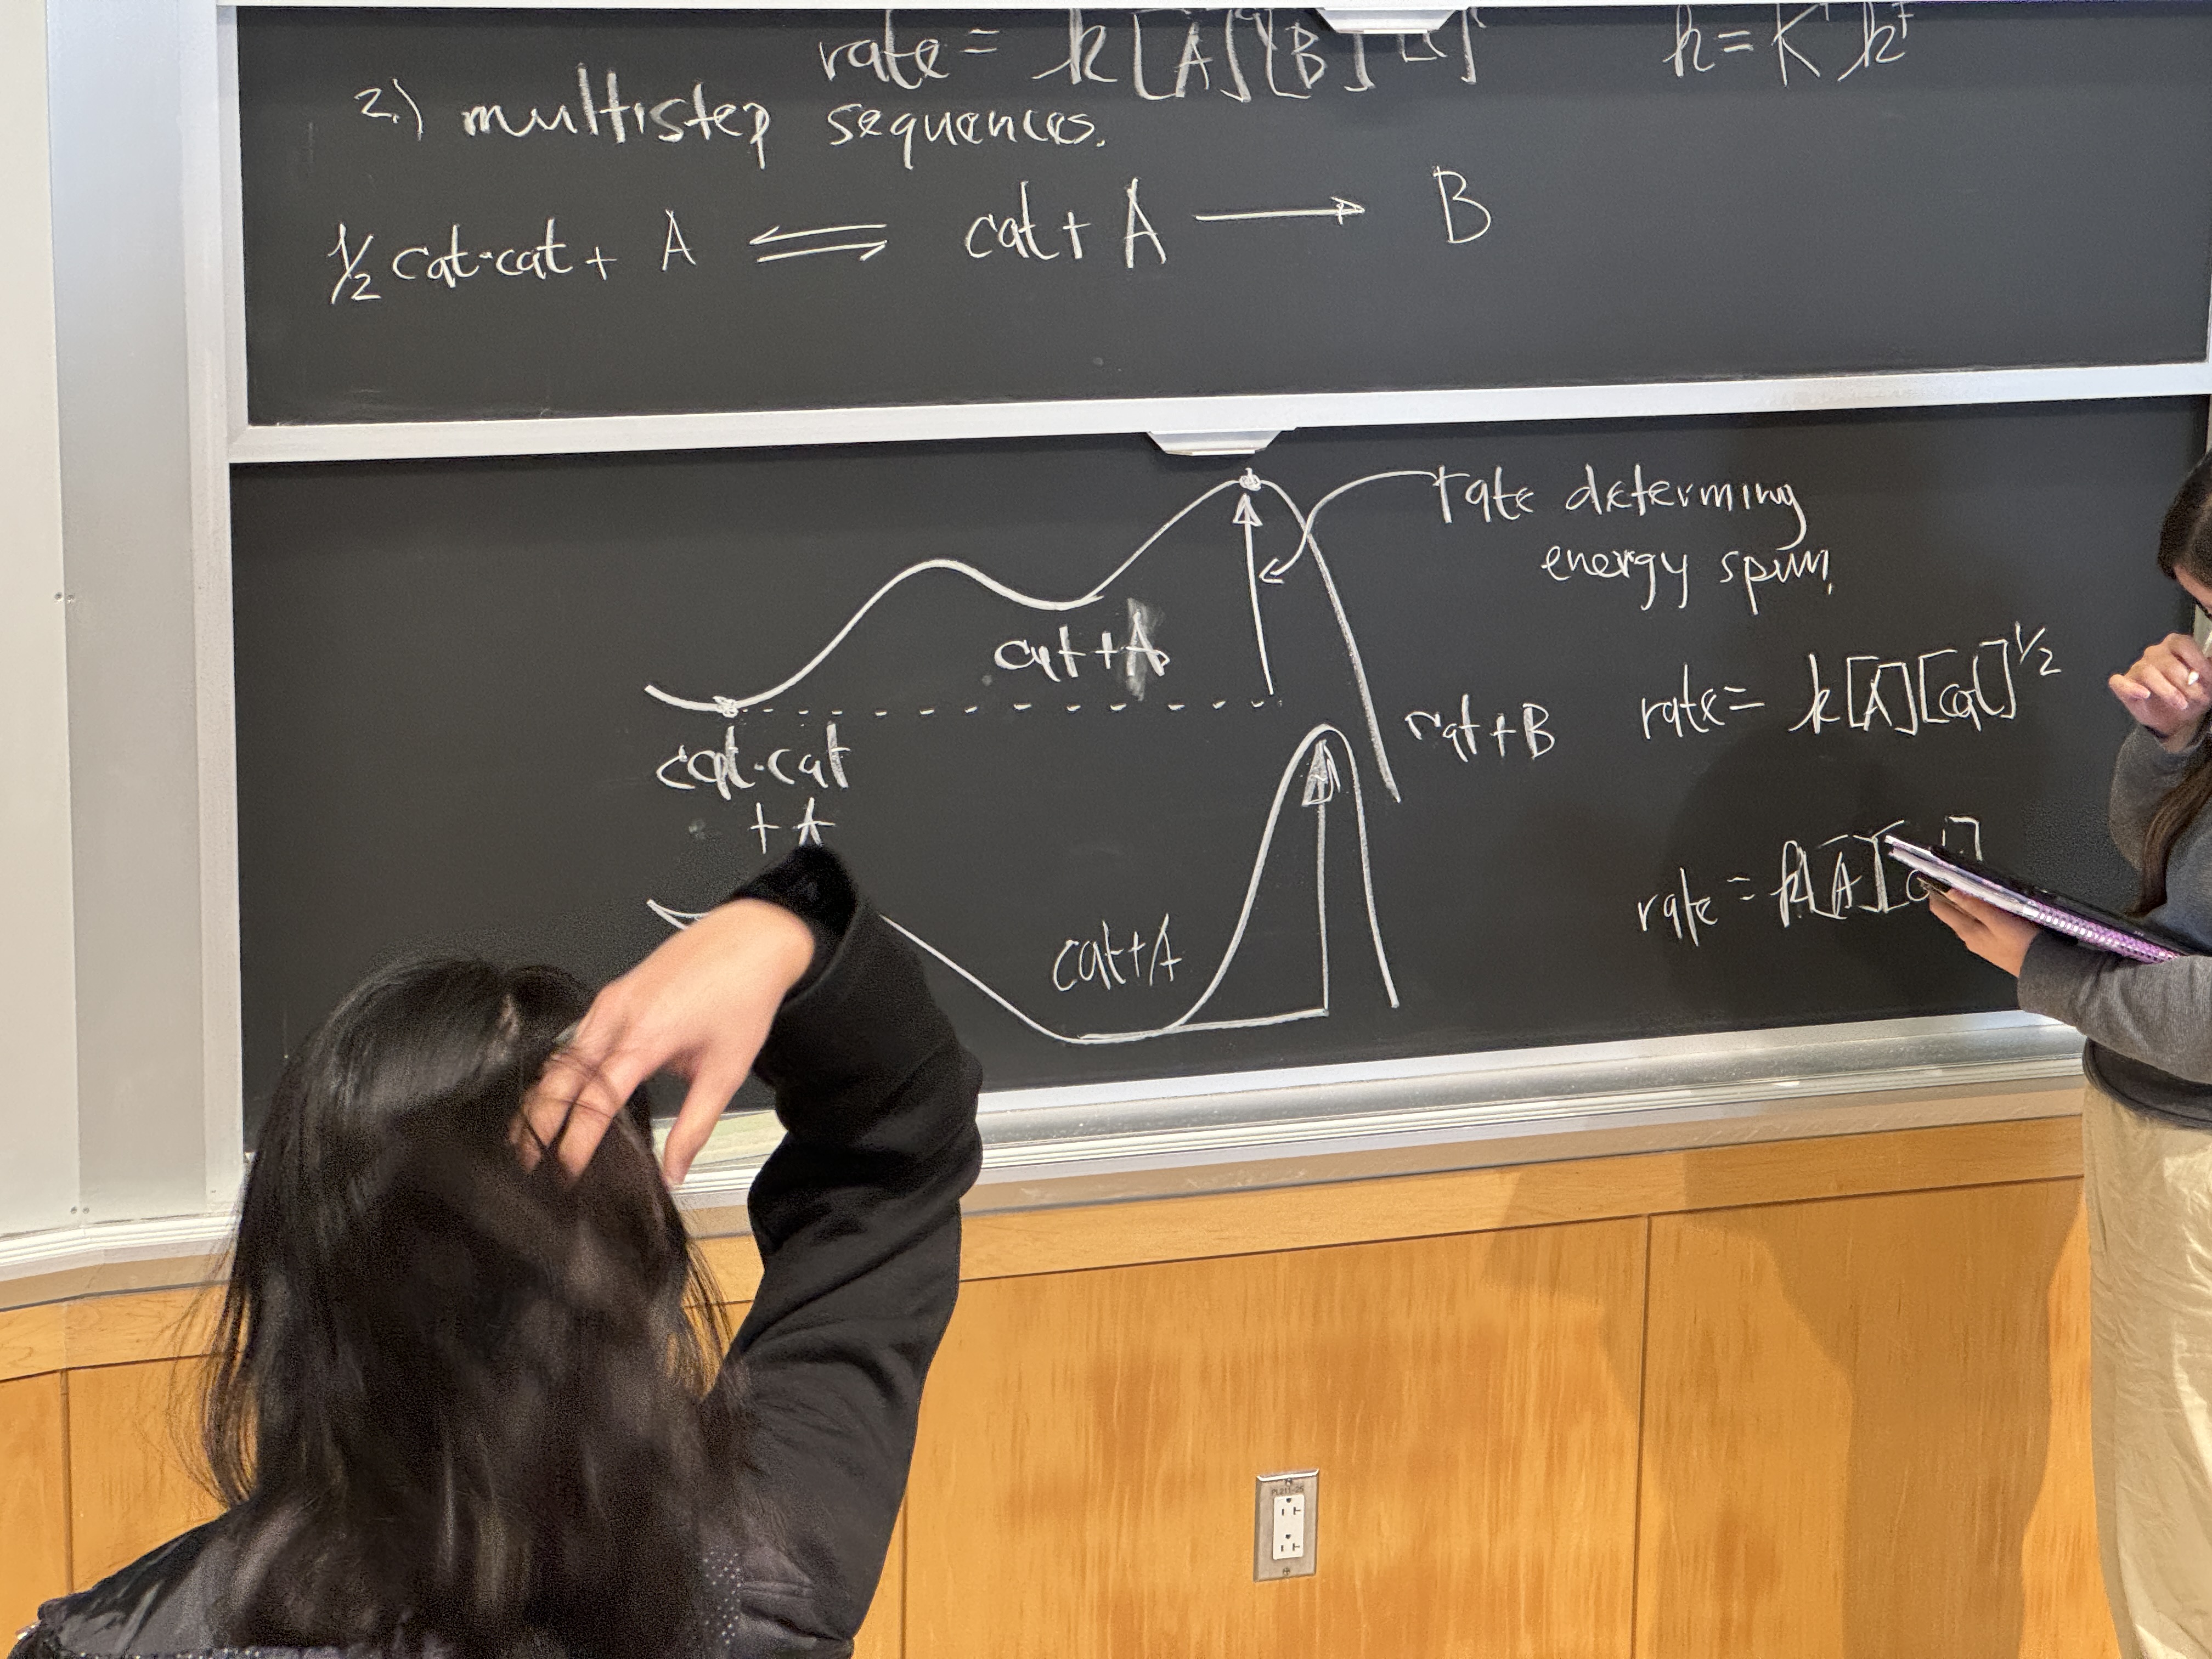 rate = k[A][B]
k = K k‡
2.) multistep sequences.
1/2 cat·cat + A ⇌ cat + A → B
rate determing
energy spun
cat + A
rate = k[A][cat]^1/2
cat·cat
+ A
cat + B
rate = k[A][
cat + A
PL211-25